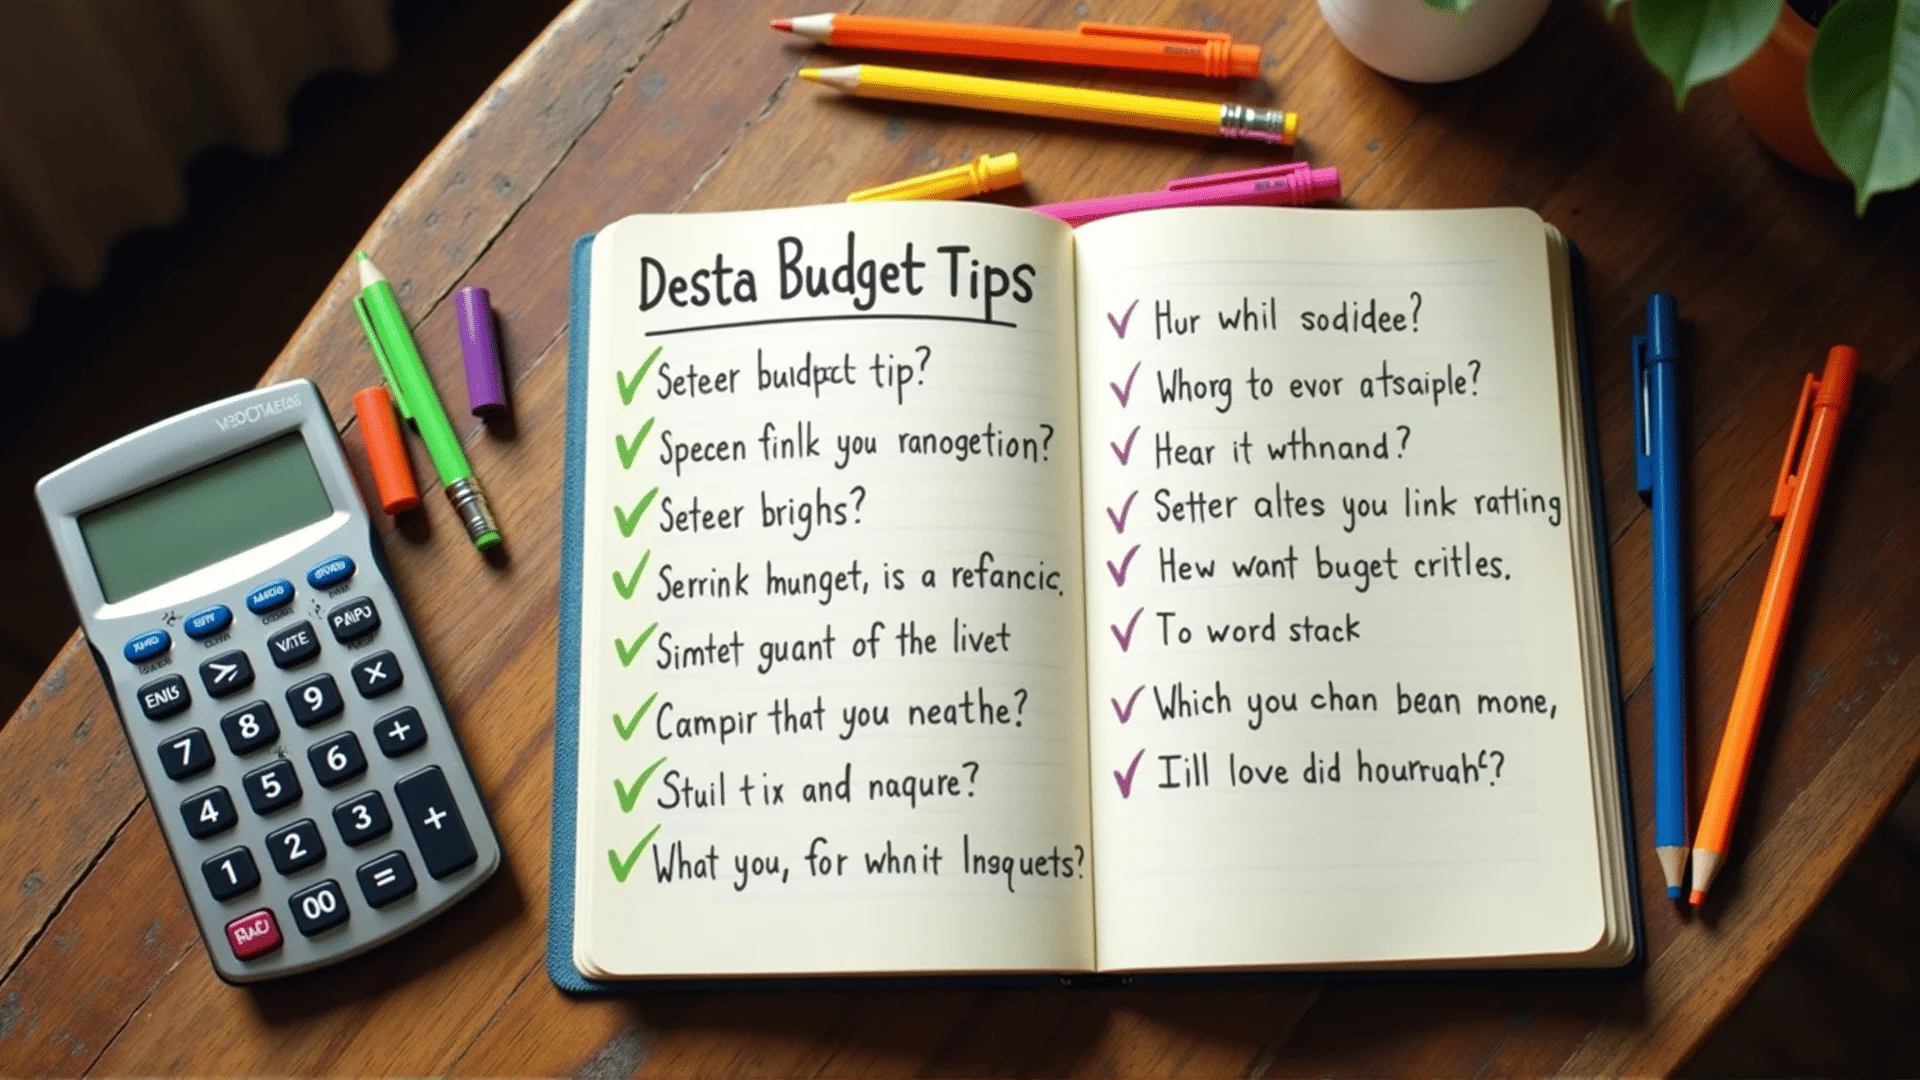 Desta Budget Tips
Seteer buidpct tip?
Specen finlk you ranogetion?
Seteer brighs?
Serrink hunget, is a refancic.
Simtet guant of the livet
Campir that you neathe?
Stuil tix and naqure?
What you, for whnit Insquets?
Hur whil sodidee?
Whorg to evor atsaiple?
Hear it wthnand?
Setter altes you link ratling
Hew want buget critles.
To word stack
Which you chan bean mone,
Iill love did hourruah?
ENIS
VITE
7 8 9 ×
4 5 6 +
1 2 3 +
00 =